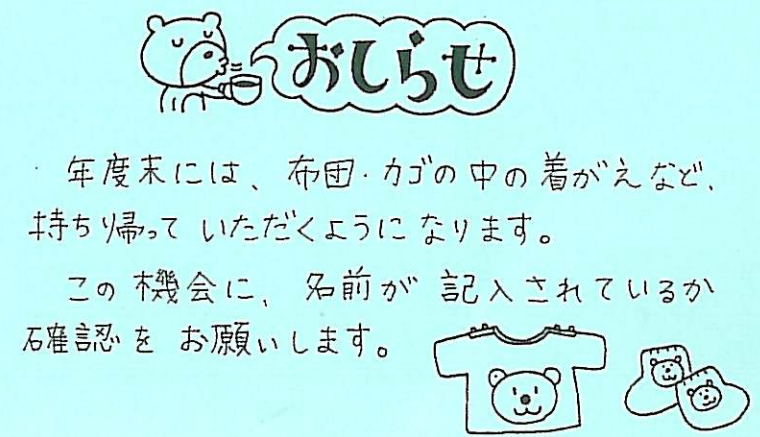 おしらせ
年度末には、布団・カゴの中の着がえなど、
持ち帰っていただくようになります。
この機会に、名前が記入されているか
確認をお願いします。